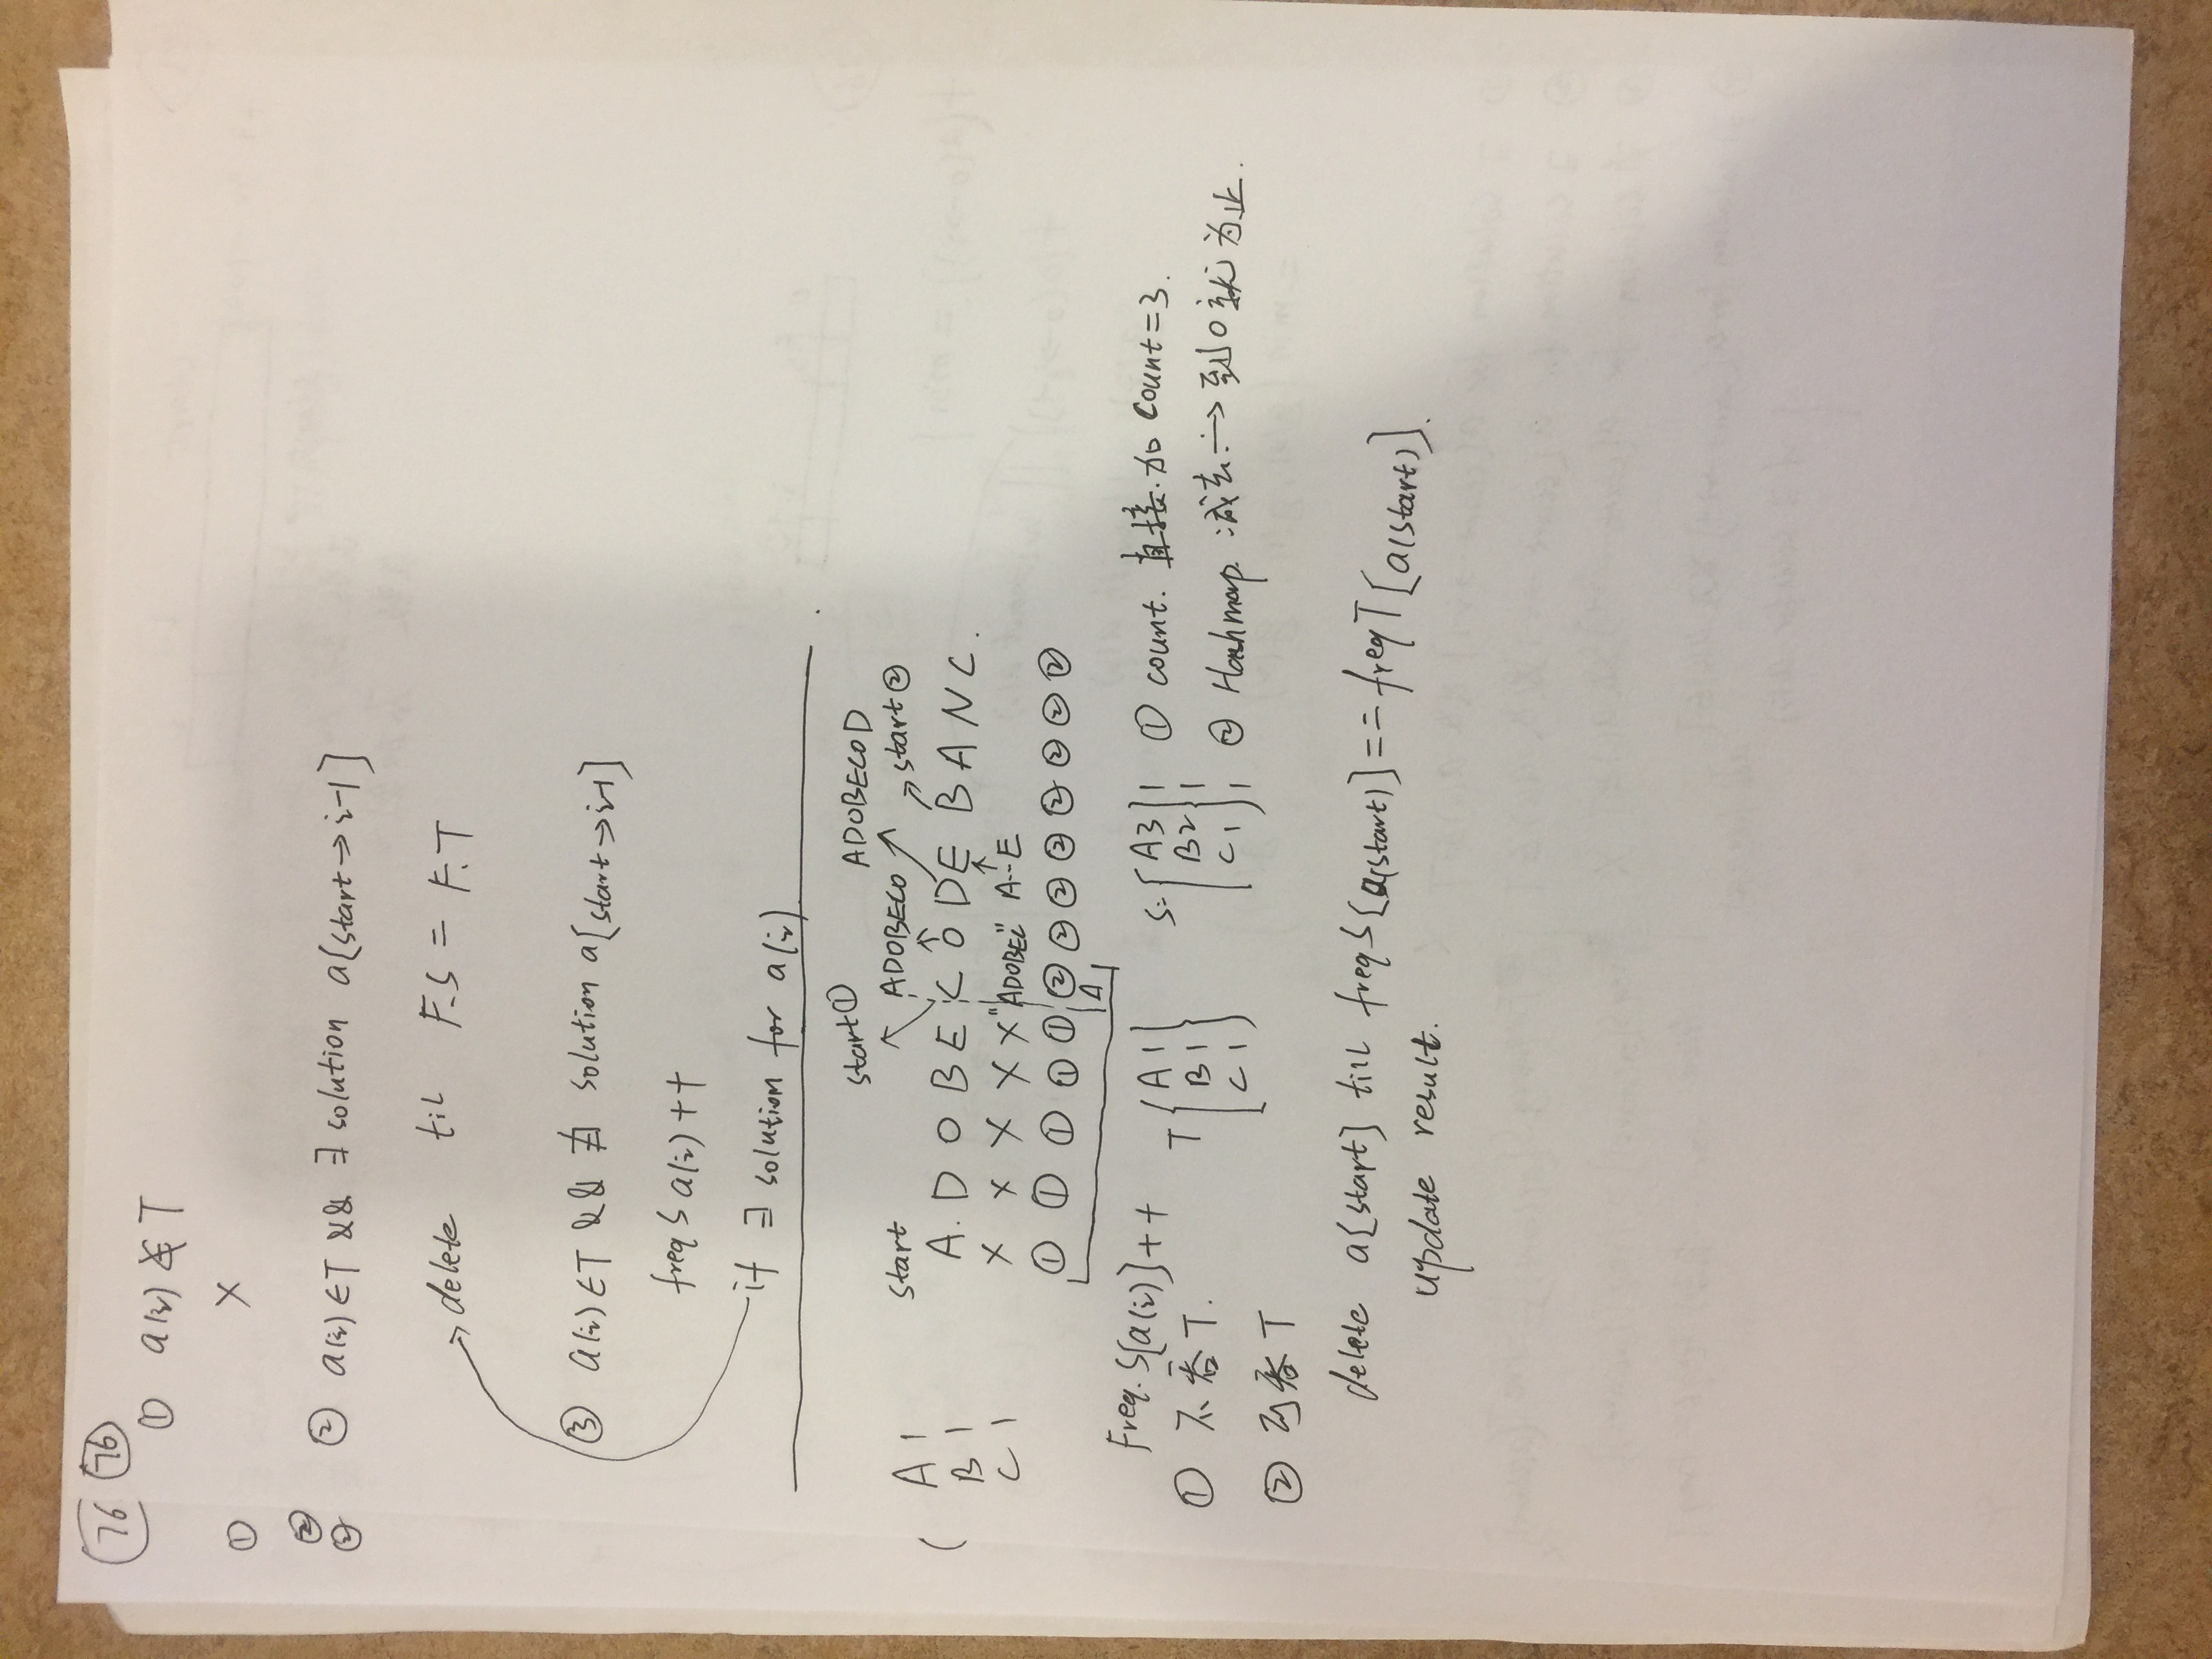 76 76
① a(i) ∉ T
①
×
②
②
② a(i) ∈ T && ∃ solution a[start → i-1]
delete til F.S = F.T
③ a(i) ∈ T && ∄ solution a[start → i-1]
freq S a(i) ++
if ∃ solution for a(i)
start① ADOBECOD
start ADOBECO start②
A 1
B 1
C 1
A. D O B E C O D E B A N C.
× × × × × "ADOBEC" A--E
① ① ① ① ① ② ② ② ② ② ② ② ②
A
Freq. S[a(i)]++
① 不吞 T.
② 可吞 T
T { A 1
B 1
C 1 }
S: { A3 } 1
B2 } 1
C1 } 1
① count. 直接.加 count=3.
② Hashmap. 减去 → 到0就为止.
delete a[start] till freq S[a(start)] == freq T[a(start)].
update result.